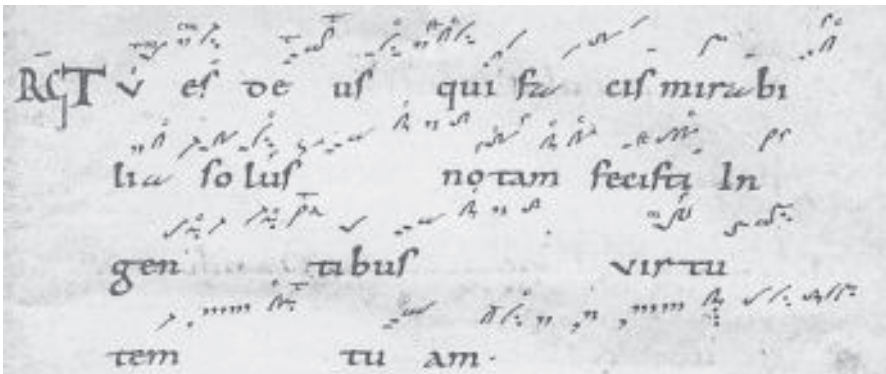 RG Tu es de us qui fa cis mirabi
lia solus notam fecisti In
gen tibus virtu
tem tu am.